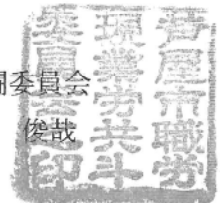 闘委員会
俊哉
芦屋市職労
現業労共斗
委員
印